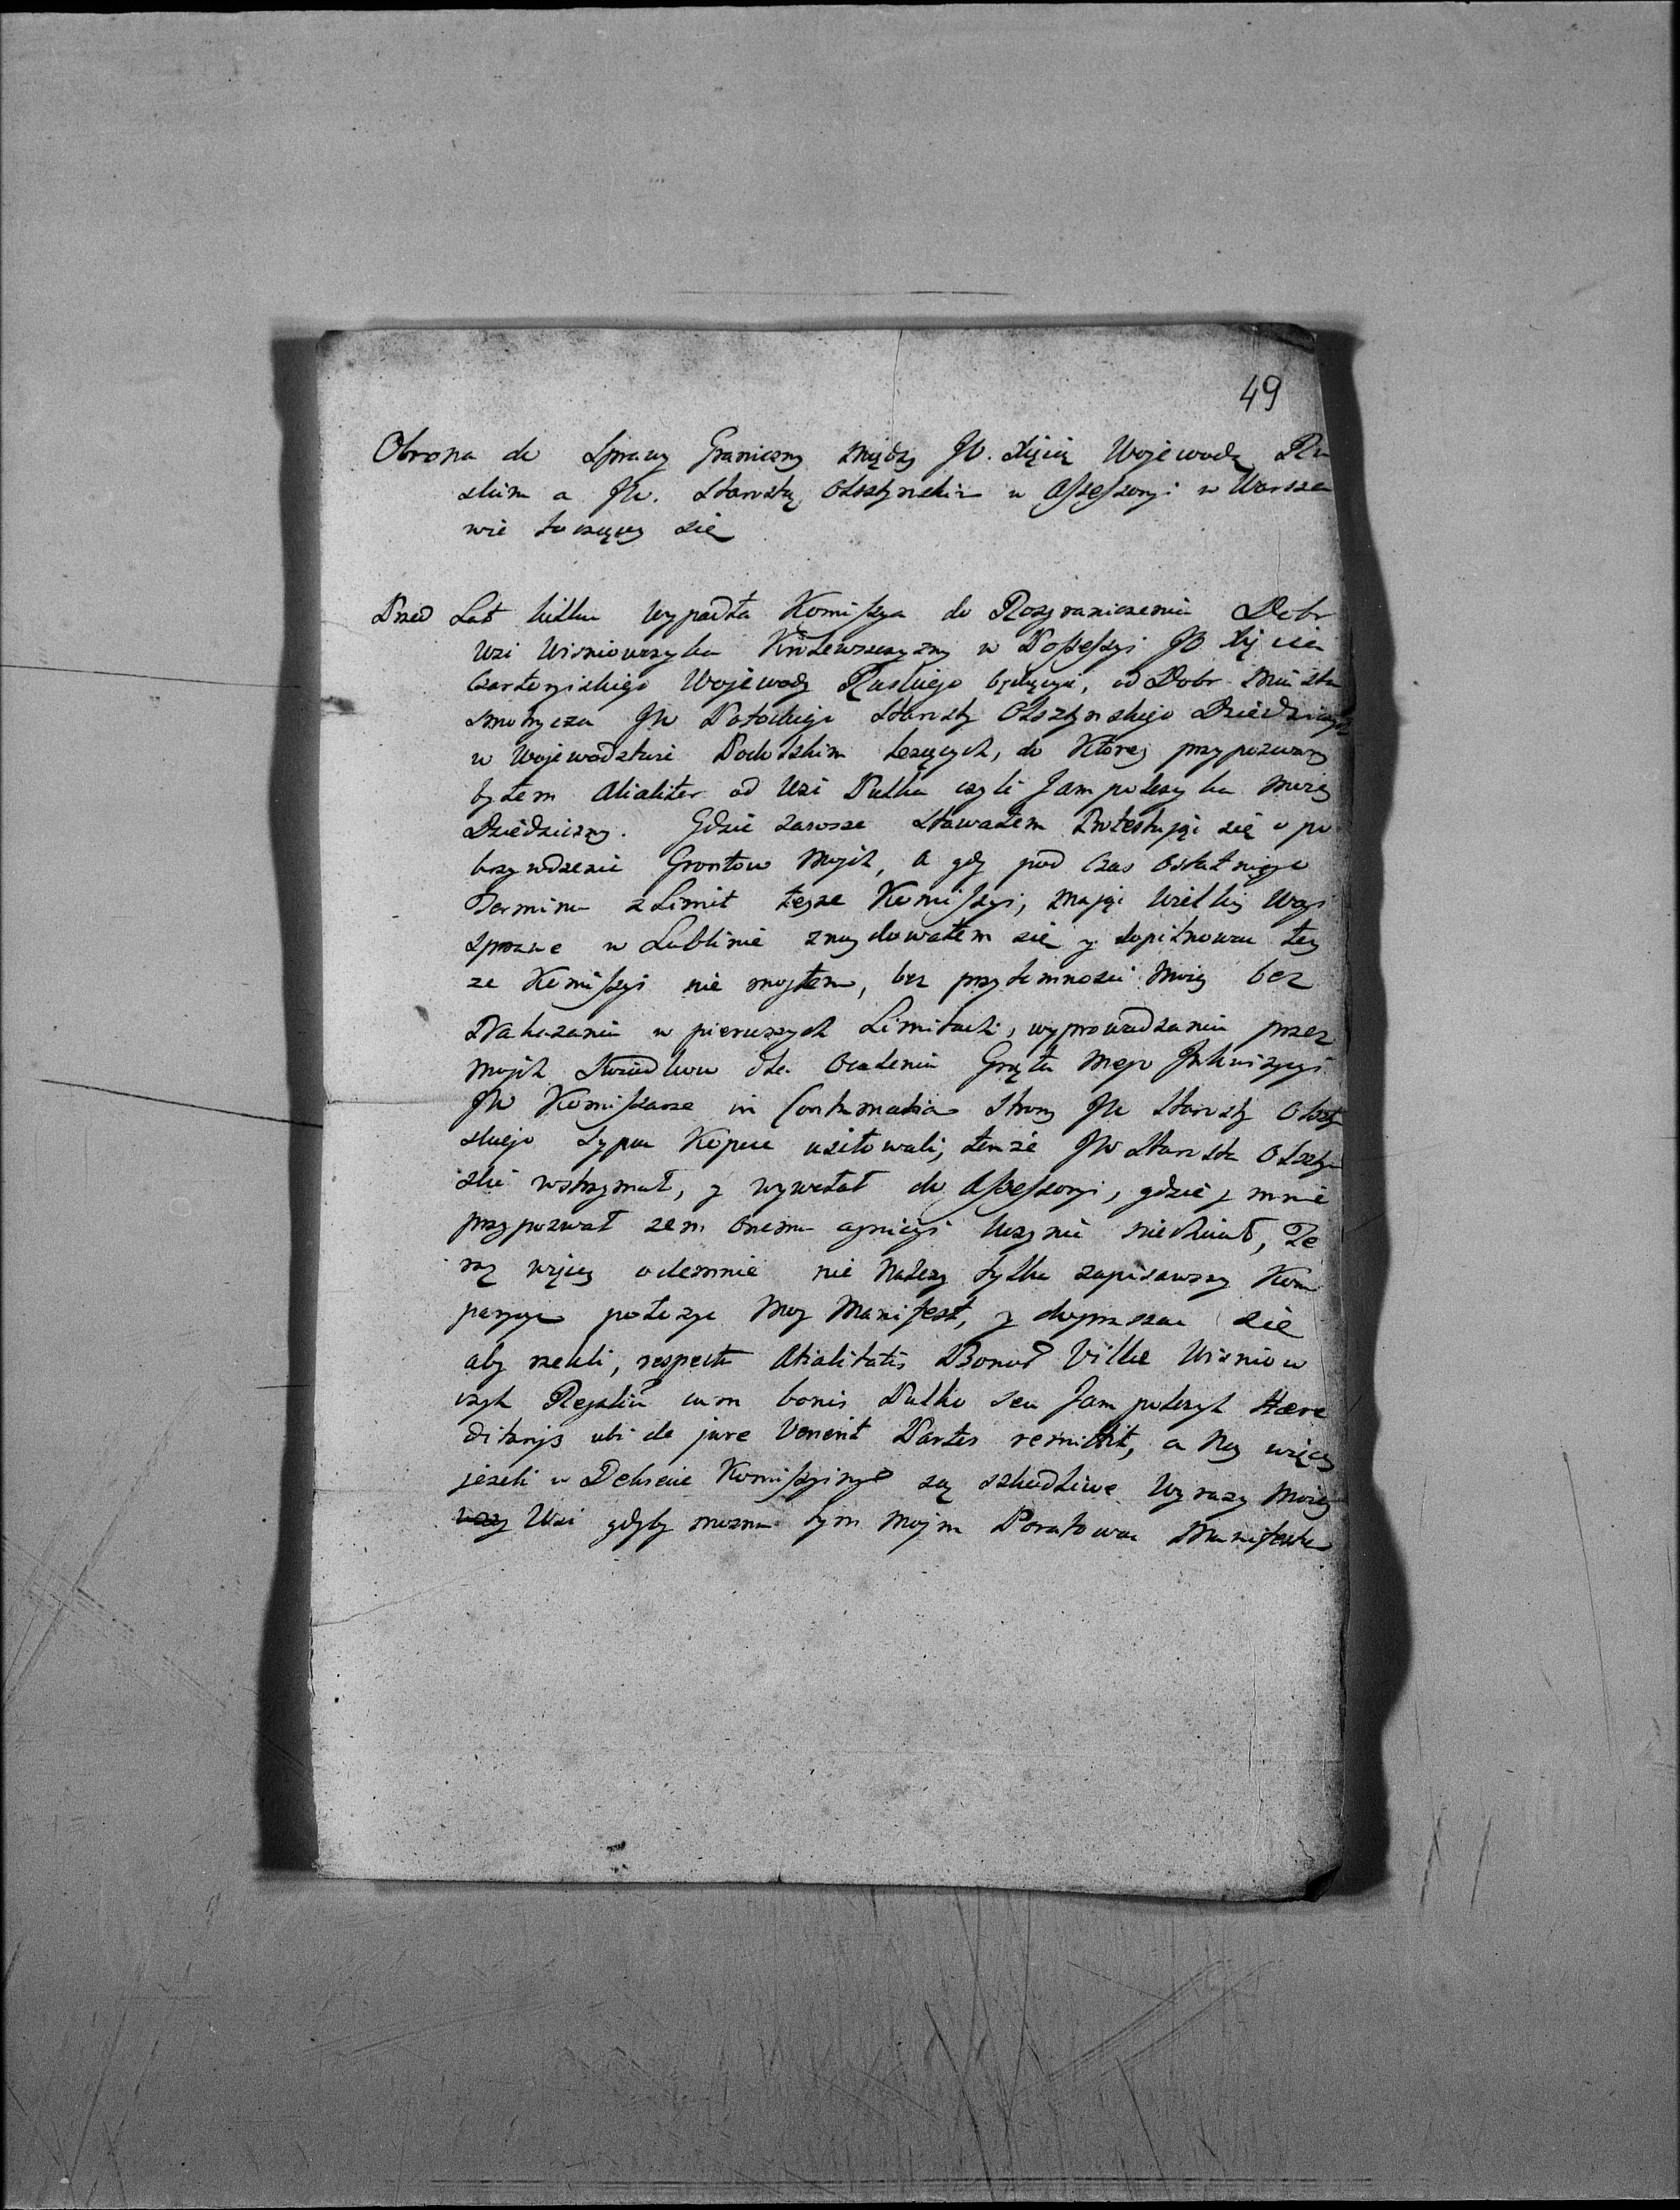 49
Obrona do Sprawy Graniczny między JO. Xięcią Wojewodą Ru
skim a JW. Starostą Olsztynskim w Assessoryi w Warsza
wie toczący się
Przed Lat kilku wypadła Komissya do Rozgraniczenia Dobr
Wsi Wisniowczyka Krolewszczyzny w Possessyi JO Xięcia
Czartoryiskiego Wojewody Ruskiego będącyi, od Dobr Miasta
Smotrycza JW Potockiego Starosty Olsztynskiego Dziedzicznych
w Wojewodztwie Podolskim Lezących, do Ktorej przypozwany
byłem Atialiter od Wsi Pulka czyli Jampolczyka moiej
Dziedziczny. Gdzie zawsze stawałem Protestując się o po
krzywdzenie Grontow Moich, a gdy pod Czas ostatniego
Terminu z Limit tejze Komissyi, mając Wielkiej Wagi
Sprawe w Lublinie znajdowałem się y dopilnowac tey
ze Komissyi nie mogłem, bez przytomnosci Moiej bez
Nakazania w pierwszych Limitach, wyprowadzania przez
moich Swiadkow dla Ocalenia Grątu mego Inkwizycyi
JW Komissarze in Contumatia Strony JW Starosty Olszty
skiego Sypac Kopce usiłowali, tenze JW Starosta Olszty
ski wstrzymał, y wywołał do Assessoryi, gdzie y mnie
przypozwał zem onemu czynicyi Uczynic niechciał, Te
raz więcej odemnie nie Nalezy tylko zapisawszy Kom
parycye połozyc Moj Manifest, y dopraszac się
aby rzekli, respectu Atialitatis Bonor Villae Wisniow
czyk Regaliu cum bonis Pulko seu Jampolczyk Haere
ditarijs ubi de jure Venerit Partes remittit, a Nay więcej
jezeli w Dekrecie Komissyinym są szkodliwe Wyrazy Moiej
Wsi gdyby mozna tym Mojm Poratowac Manifestem